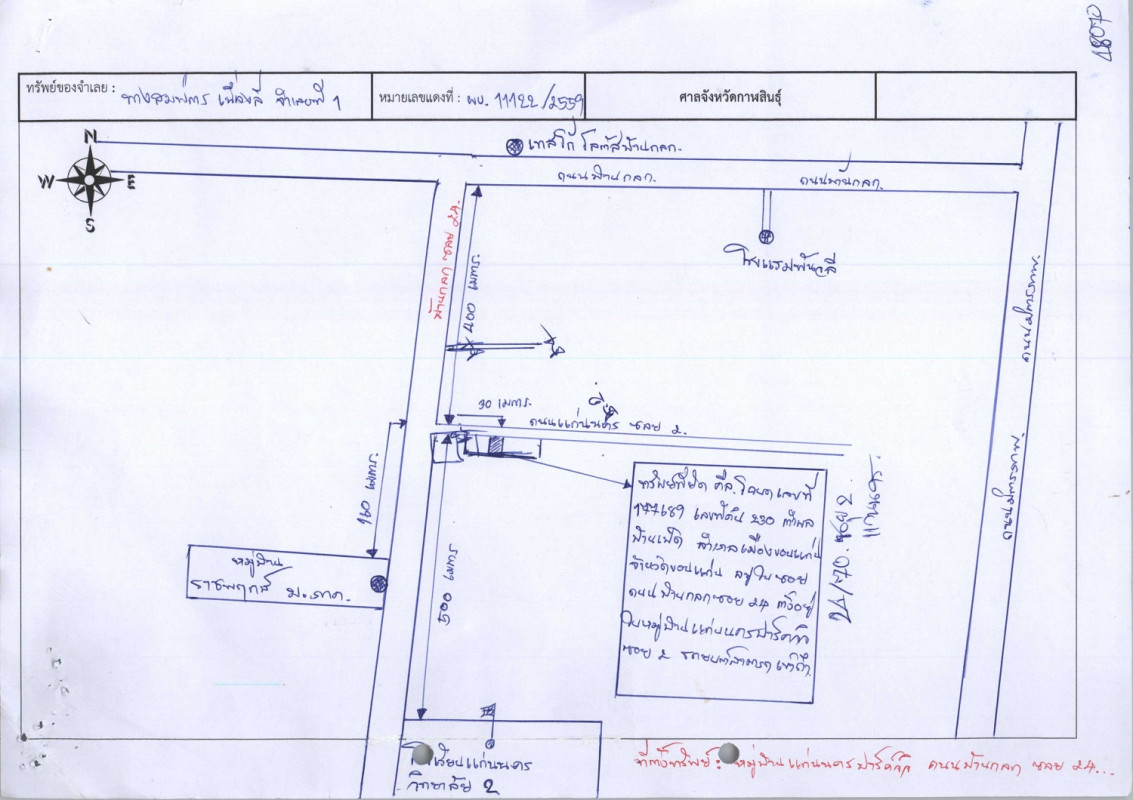 18070
ทรัพย์ของจำเลย : นางสมพาร เพ็งลี จำเลยที่ 1
หมายเลขแดงที่ : ผบ. 11122/2559
ศาลจังหวัดกาฬสินธุ์
N
W E
S
เทสโก้ โลตัสบ้านกอก.
ถนนบ้านกอก.
ถนนบ้านกอก.
บ้านกอก ซอย 24.
200 เมตร
30 เมตร.
ถนนแก่นนคร ซอย 2.
160 เมตร.
500 เมตร
หมู่บ้าน
ราชพฤกษ์ ม.ภาค.
ทรัพย์ที่ยึด คือ โฉนดเลขที่
177689 เลขที่ดิน 230 ตำบล
บ้านเป็ด อำเภอเมืองขอนแก่น
จังหวัดขอนแก่น อยู่ในซอย
ถนนบ้านกอกซอย 24 ตั้งอยู่
ในหมู่บ้านแก่นนครปาร์ค
ซอย 2 รถยนต์สามารถเข้าถึง
24/270. ซอย 2
แก่นนคร.
ถนนมิตรภาพ.
ถนนมิตรภาพ.
โรงเรียนแก่นนคร
วิทยาลัย 2
ที่ตั้งทรัพย์ : หมู่บ้านแก่นนครปาร์ค ถนนบ้านกอก ซอย 24...